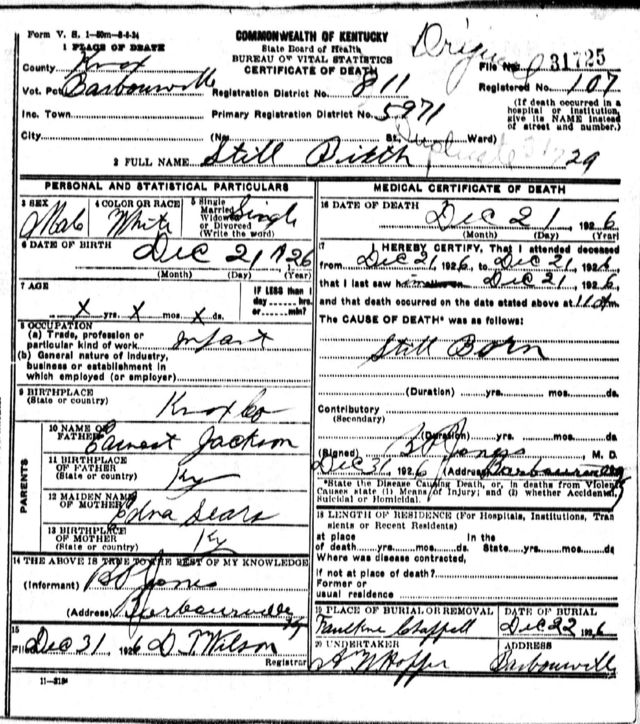 Form V. S. 1—50m—8-4-24
COMMONWEALTH OF KENTUCKY
State Board of Health
BUREAU OF VITAL STATISTICS
CERTIFICATE OF DEATH
Original
File No. 31725
Registered No. 107
(If death occurred in a hospital or institution, give its NAME instead of street and number.)
1 PLACE OF DEATH
County Knox
Vot. Pct Barbourville
Registration District No. 811
Inc. Town
Primary Registration District No. 5971
City
(No.
St., Ward)
Duplicate 29
2 FULL NAME Still Birth
PERSONAL AND STATISTICAL PARTICULARS
3 SEX Male
4 COLOR OR RACE White
5 Single Married Widowed or Divorced (Write the word) Single
6 DATE OF BIRTH Dec 21, 1926
(Month) (Day) (Year)
7 AGE
x yrs. x mos. x ds.
IF LESS than 1 day hrs. or min?
8 OCCUPATION
(a) Trade, profession or particular kind of work Infant
(b) General nature of industry, business or establishment in which employed (or employer)
9 BIRTHPLACE
(State or country) Knox Co
PARENTS
10 NAME OF FATHER Earnest Jackson
11 BIRTHPLACE OF FATHER
(State or country) Ky
12 MAIDEN NAME OF MOTHER Edna Sears
13 BIRTHPLACE OF MOTHER
(State or country) Ky
14 THE ABOVE IS TRUE TO THE BEST OF MY KNOWLEDGE
(Informant) Jones
(Address) Barbourville Ky
15
Filed Dec 31, 1926 D. T. Wilson
Registrar
11—3184
MEDICAL CERTIFICATE OF DEATH
16 DATE OF DEATH
Dec 21, 1926
(Month) (Day) (Year)
17 I HEREBY CERTIFY, That I attended deceased
from Dec 21, 1926, to Dec 21, 1926,
that I last saw h alive on Dec 21, 1926,
and that death occurred on the date stated above at 11 m.
The CAUSE OF DEATH* was as follows:
Still Born
(Duration) yrs. mos. ds.
Contributory
(Secondary)
(Duration) yrs. mos. ds.
(Signed) Jones, M. D.
Dec 31, 1926 (Address) Barbourville Ky
*State the Disease Causing Death, or, in deaths from Violent Causes state (1) Means of Injury; and (2) whether Accidental, Suicidal or Homicidal.
18 LENGTH OF RESIDENCE (For Hospitals, Institutions, Transients or Recent Residents)
at place of death yrs. mos. ds. In the State yrs. mos. ds.
Where was disease contracted,
if not at place of death?
Former or
usual residence
19 PLACE OF BURIAL OR REMOVAL DATE OF BURIAL
Faulkne Chappell Dec 22, 1926
20 UNDERTAKER ADDRESS
A W Hopper Barbourville